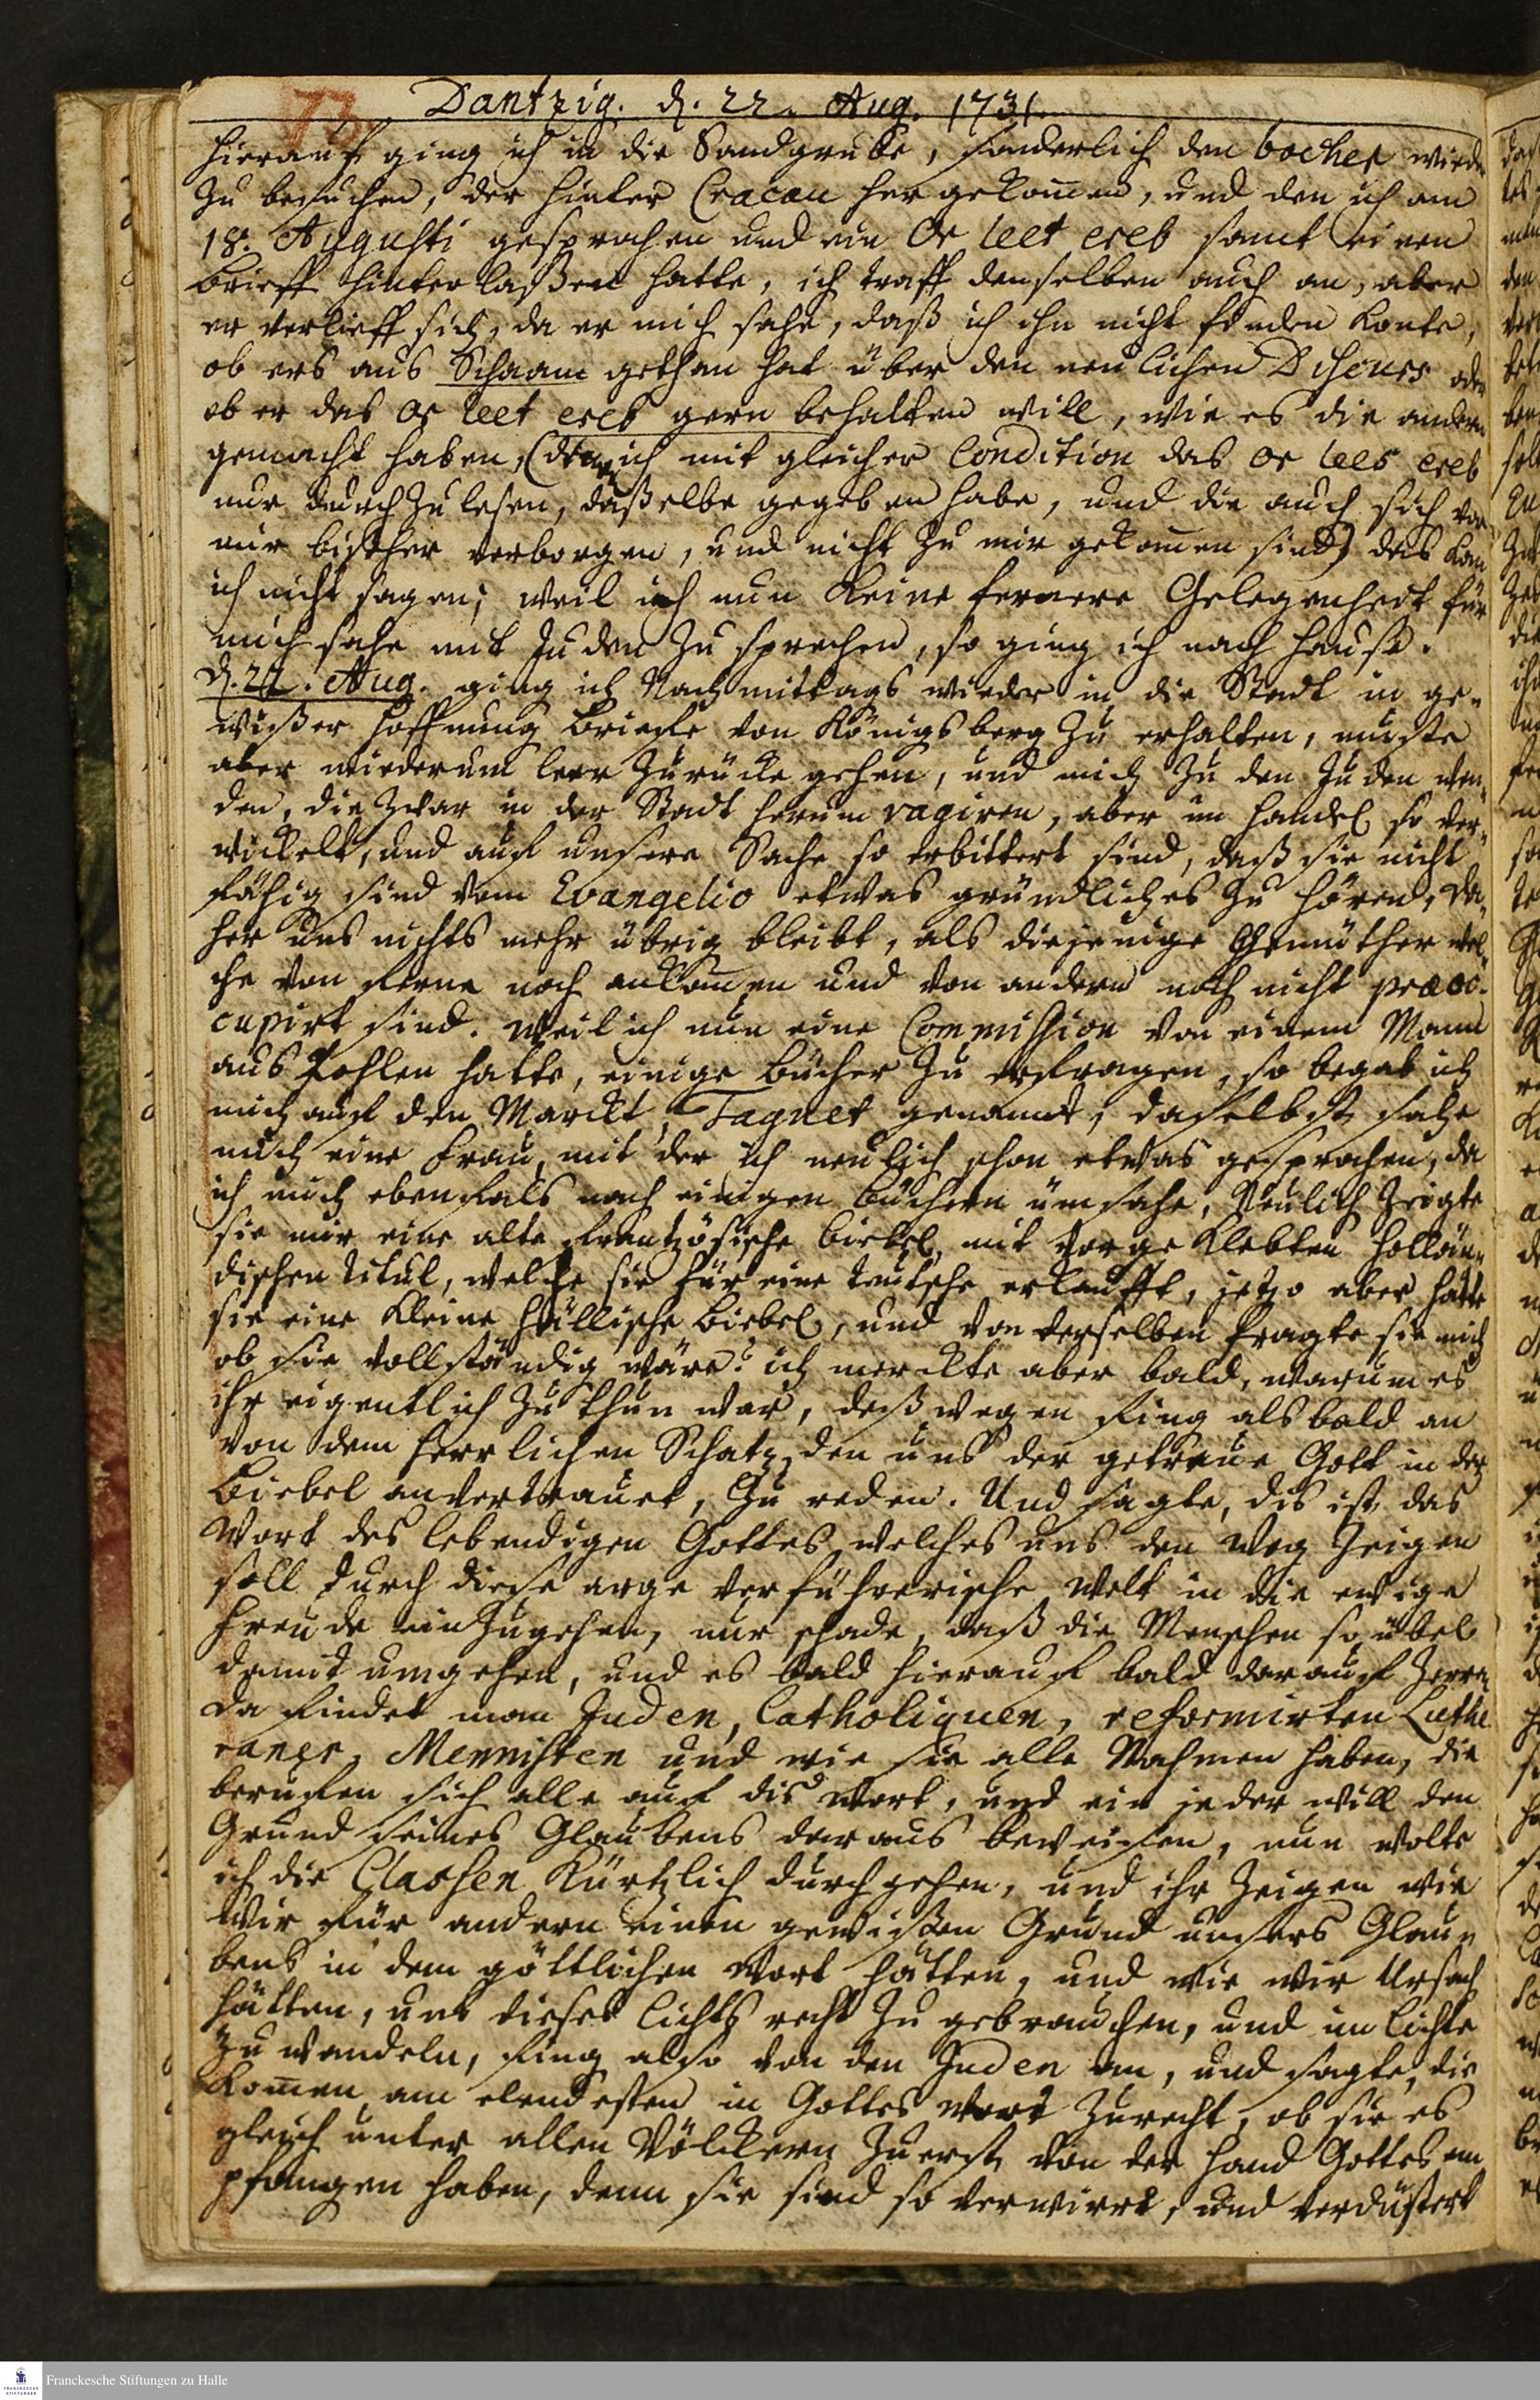 73.
Dantzig. d. 22. Aug. 1731.
hierauf ging ich in die Sandgrube, sonderlich den bocher wieder
zu besuchen, der hinter Cracau hergekom̅en, und den ich am
18. Augusti gesprochen und ein Or leet ereb samt einen
Brieff hinterlaßen hatte, ich traff denselben auch an, aber
er verlieff sich, da er mich sahe, daß ich ihn nicht finden konte,
ob ers aus Schaam gethan hat über den neulichen Discurs oder
ob er das Or leet ereb gern behalten will, wie es die andern
gemacht haben, (denen ich mit gleicher Condition das Or lees ereb
nur durchzulesen, daßelbe gegeben habe, und die auch sich vor
mir bisher verborgen, und nicht zu mir gekom̅en sind) das kan
ich nicht sagen; weil ich nun keine fernere Gelegenheit für
mich sahe mit Juden zu sprechen, so ging ich nach Hause.
d. 22. Aug. ging ich Nachmittags wieder in die Stadt in ge-
wißer Hoffnung Briefe von Königsberg zu erhalten, muste
aber wiederum leer zurücke gehen, und mich zu den Juden wen-
den, die zwar in der Stadt herum vagiren, aber im Handel so ver-
wickelt, und auf unsere Sache so erbittert sind, daß sie nicht
fähig sind vom Evangelio etwas gründliches zu hören, da-
her uns nichts mehr übrig bleibt, als diejenige Gemüther wel-
che von ferne noch ankom̅en und von andern noch nicht præoc-
cupirt sind. Weil ich nun eine Commission von einem Mann
aus Pohlen hatte, einige Bücher zu erfragen, so begab ich
mich auf den Marckt, Tagnet genannt, daselbst sahe
mich eine Frau, mit der ich neulich schon etwas gesprochen, da
ich mich ebenfals nach einigen Büchern umsahe, Neulich zeigte
sie mir eine alte frantzösische Biebel, mit vorgeklebten Hollän-
dischen Titul, welche sie für eine teutsche erkaufft, jetzo aber hatte
sie eine kleine Hällische Biebel, und von derselben fragte sie mich
ob sie vollständig wäre? ich merckte aber bald, warum es
ihr eigentlich zu thun war, deßwegen fing alsbald an
von dem herrlichen Schatz, den uns der getreue Gott in der
Biebel anvertrauet, zu reden. Und sagte, dis ist das
Wort des lebendigen Gottes, welches uns den Weg zeigen
soll durch diese arge verführerische Welt in die ewige
Freude einzugehen, nur schade, daß die Menschen so übel
damit umgehen, und es bald hierauf bald darauf zerren,
da findet man Juden, Catholiquen, reformirten Luthe
raner, Mennisten und wie sie alle Nahmen haben, die
berufen sich alle auf dis Wort, und ein jeder will den
Grund seines Glaubens daraus beweisen, nun wolte
ich die Classen kürtzlich durchgehen, und ihr zeigen wie
wir für andern einen gewißen Grund unsers Glau-
bens in dem göttlichen Wort hätten, und wie wir Ursach
hätten, uns dieses Lichts recht zu gebrauchen, und im Lichte
zu wandeln, fing also von den Juden an, und sagte, die
kom̅en am elendesten in Gottes Wort zurecht, ob sie es
gleich unter allen Völckern zuerst von der Hand Gottes em
pfangen haben, denn sie sind so verwirrt, und verdüstert
Franckesche Stiftungen zu Halle